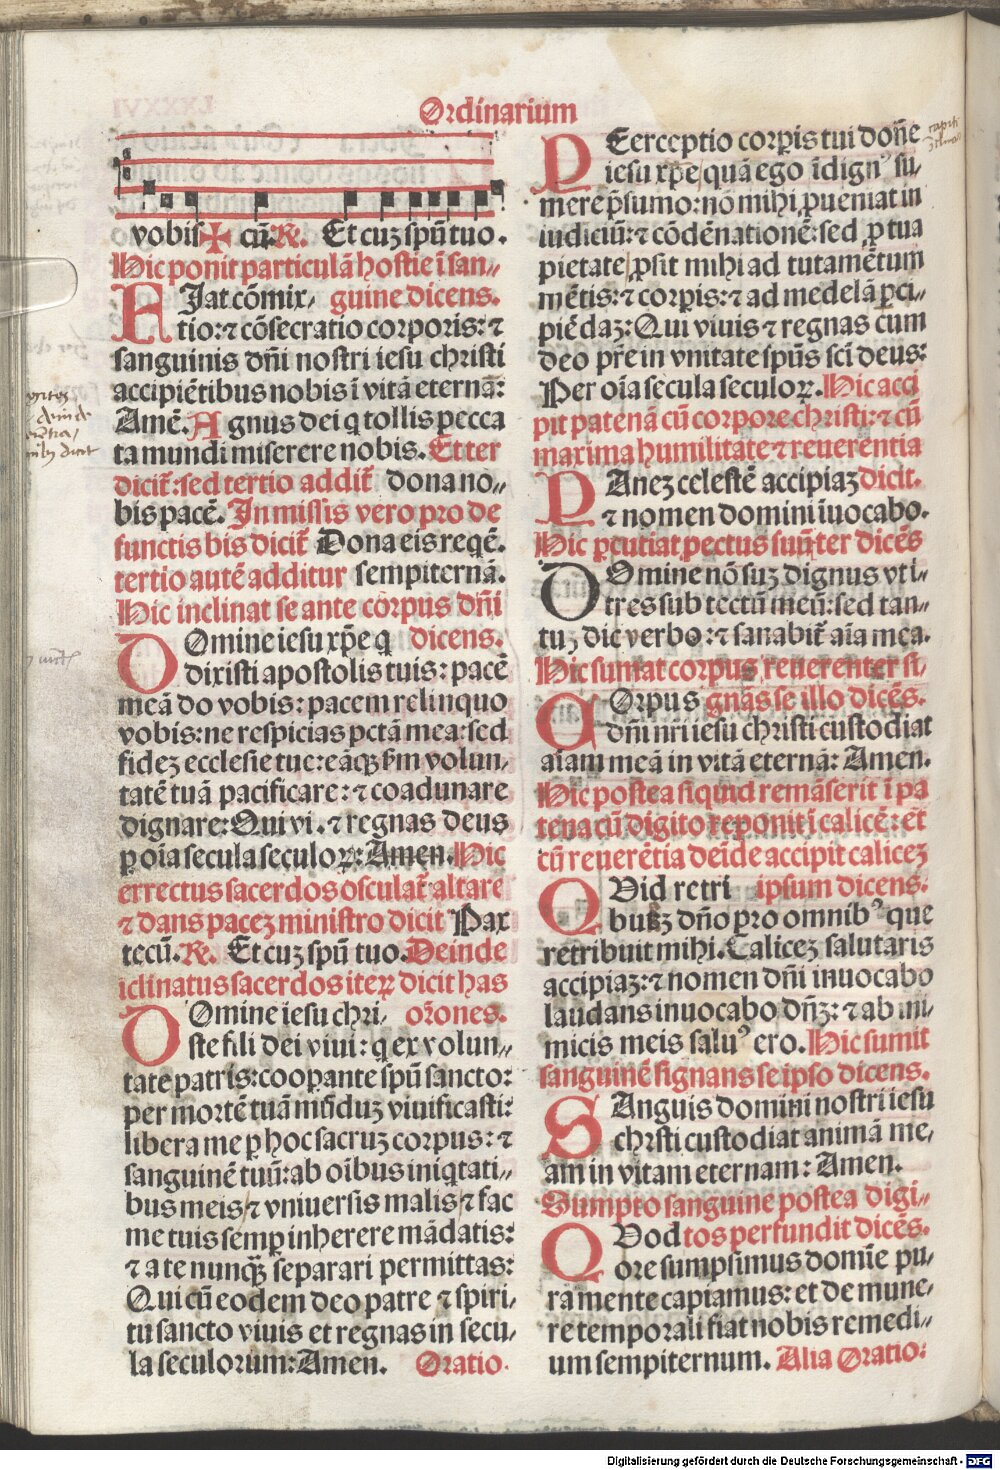 Ordinarium
vobis ✠ cū. R. Et cuȝ spū tuo.
Hic ponit particulā hostie ī san⸗
FJat cōmix⸗ guine dicens.
tio: ⁊ cōsecratio corporis: ⁊
sanguinis dn̄i nostri iesu christi
accipiētibus nobis ī vitā eternā:
Amē. Agnus dei q tollis pecca
ta mundi miserere nobis. Et ter
dicit̄: sed tertio addit̄ dona no⸗
bis pacē. In missis vero pro de
functis bis dicit̄ Dona eis reqē.
tertio autē additur sempiternā.
Hic inclinat se ante corpus dn̄i
DOmine iesu xp̄e q dicens.
dixisti apostolis tuis: pacē
meā do vobis: pacem relinquo
vobis: ne respicias pctā mea: sed
fideȝ ecclesie tue: eāqȝ sm̄ volun⸗
tatē tuā pacificare: ⁊ coadunare
dignare: Qui vi. ⁊ regnas deus
ꝑ oīa secula seculoꝝ: Amen. Hic
errectus sacerdos osculat̄ altare
⁊ dans paceȝ ministro dicit Pax
tecū. R. Et cuȝ spū tuo. Deinde
iclinatus sacerdos iteꝝ dicit has
DOmine iesu chri⸗ or̄ones.
ste fili dei viui: q ex volun⸗
tate patris: cooꝑante spū sancto:
per mortē tuā mūduȝ viuificasti:
libera me ꝑ hoc sacruȝ corpus: ⁊
sanguinē tuū: ab oībus iniqtati⸗
bus meis ⁊ vniuersis malis ⁊ fac
me tuis semꝑ inherere mādatis:
⁊ a te nunqȝ̄ separari permittas:
Qui cū eodem deo patre ⁊ spiri⸗
tu sancto viuis et regnas in secu⸗
la seculorum: Amen. Oratio.
PEerceptio corꝑis tui dōne
iesu xp̄e quā ego īdignꝰ su⸗
mere p̄sumo: nō mihi ꝓueniat in
iudiciū: ⁊ cōdēnationē: sed ꝓ tua
pietate ꝓsit mihi ad tutamētum
mētis: ⁊ corꝑis: ⁊ ad medelā ꝑci⸗
piēdaȝ: Qui viuis ⁊ regnas cum
deo pr̄e in vnitate spūs sci deus:
Per oīa secula seculoꝝ. Hic acci
pit patenā cū corpore christi: ⁊ cū
maxima humilitate ⁊ reuerentia
PAneȝ celestē accipiaȝ dicit.
⁊ nomen domini īuocabo.
Hic ꝑcutiat pectus suū ter dicēs
DOmine nō suȝ dignus vt i⸗
tres sub tectū meū: sed tan⸗
tuȝ dic verbo: ⁊ sanabit̄ aīa mea.
Hic sumat corpus reuerenter si⸗
COrpus gnās se illo dicēs.
dn̄i nri iesu christi custodiat
aīam meā in vitā eternā: Amen.
Hic postea siquid remāserit ī pa
tena cū digito reponit ī calicē: et̄
cū reuerētia deīde accipit caliceȝ
QVid retri ipsum dicens.
buāȝ dn̄o pro omnibꝰ que
retribuit mihi. Caliceȝ salutaris
accipiaȝ: ⁊ nomen dn̄i inuocabo
laudans inuocabo dn̄ȝ: ⁊ ab ini⸗
micis meis saluꝰ ero. Hic sumit
sanguinē signans se ipso dicens.
SAnguis domini nostri iesu
chrsti custodiat animā me⸗
am in vitam eternam: Amen.
Sumpto sanguine postea digi⸗
QVod tos perfundit dicēs.
ore sumpsimus domīe pu⸗
ra mente capiamus: et de mune⸗
re temporali fiat nobis remedi⸗
um sempiternum. Alia Oratio:
Digitalisierung gefördert durch die Deutsche Forschungsgemeinschaft - DFG